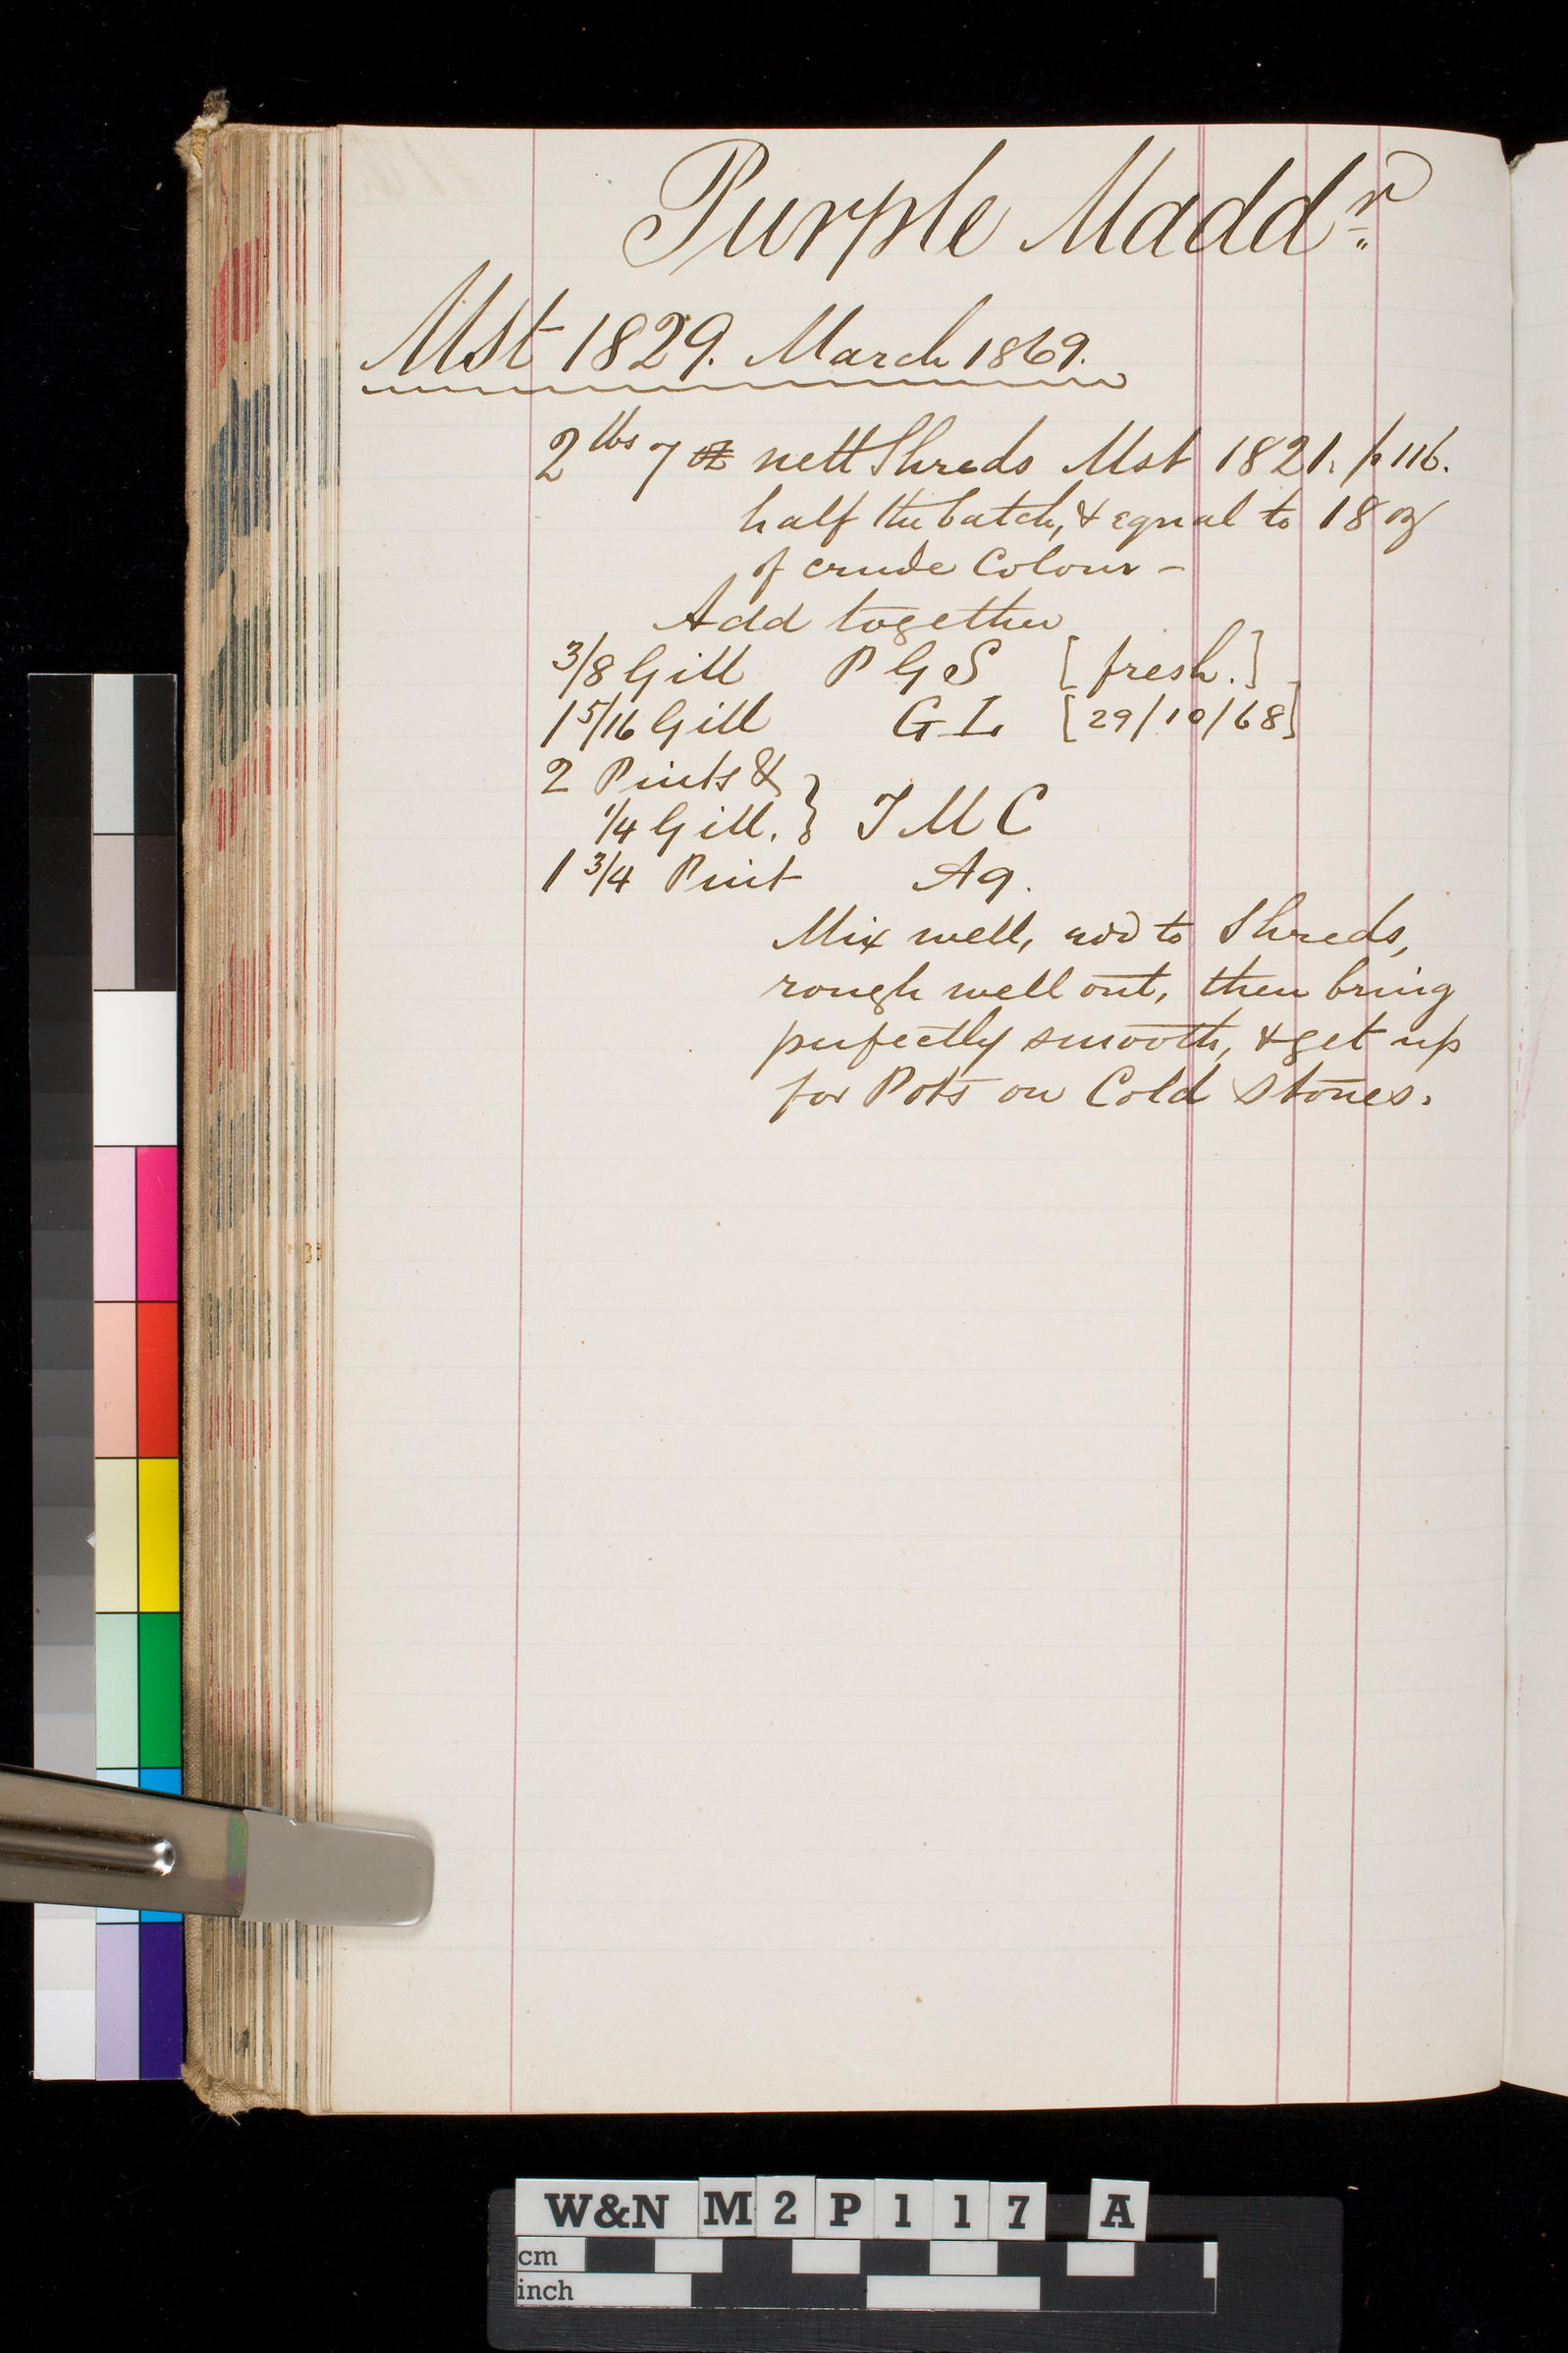 Purple Maddr
Mst 1829. March 1869.
2 lbs 7 oz nett Shreds Mst 1821. p 116.
half the batch, & equal to 18 oz
of crude Colour -
Add together
3/8 Gill P G S [fresh.]
1 5/16 Gill G L [29/10/68]
2 Pints &
1/4 Gill. } J M C
1 3/4 Pint Aq.
Mix well, add to Shreds,
rough well out, then bring
perfectly smooth, & get up
for Pots on Cold Stones.
W&N M2P117 A
cm
inch